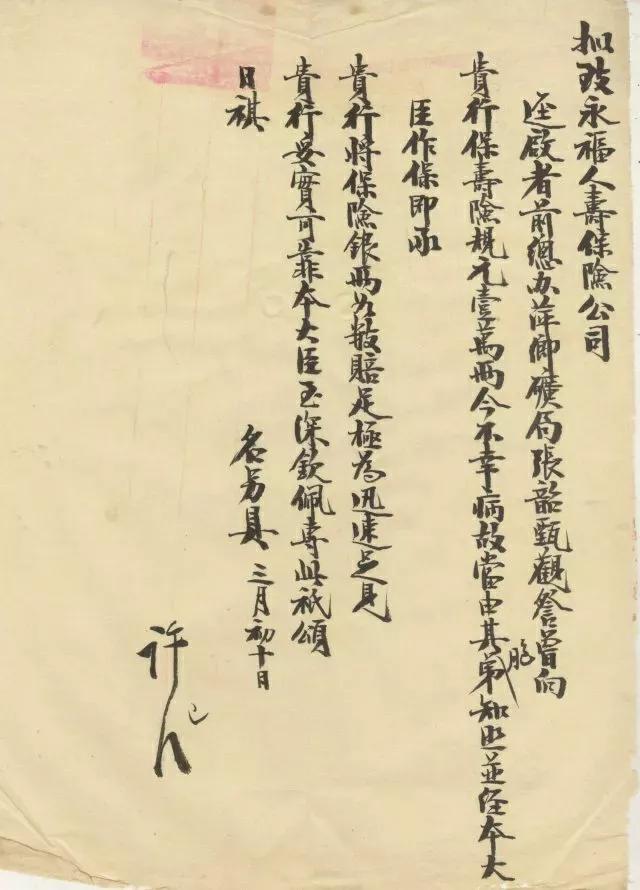 拟致永福人壽保險公司
逕啟者前總办萍鄉礦局張韶甄觀詧曾向
貴行保壽險規元壹萬兩今不幸病故當由其胞弟知照並經本大
臣作保即承
貴行將保險銀兩如數賠足極為迅速足見
貴行妥實可靠本大臣至深欽佩專此祗頌
日祺
名另具 三月初十日